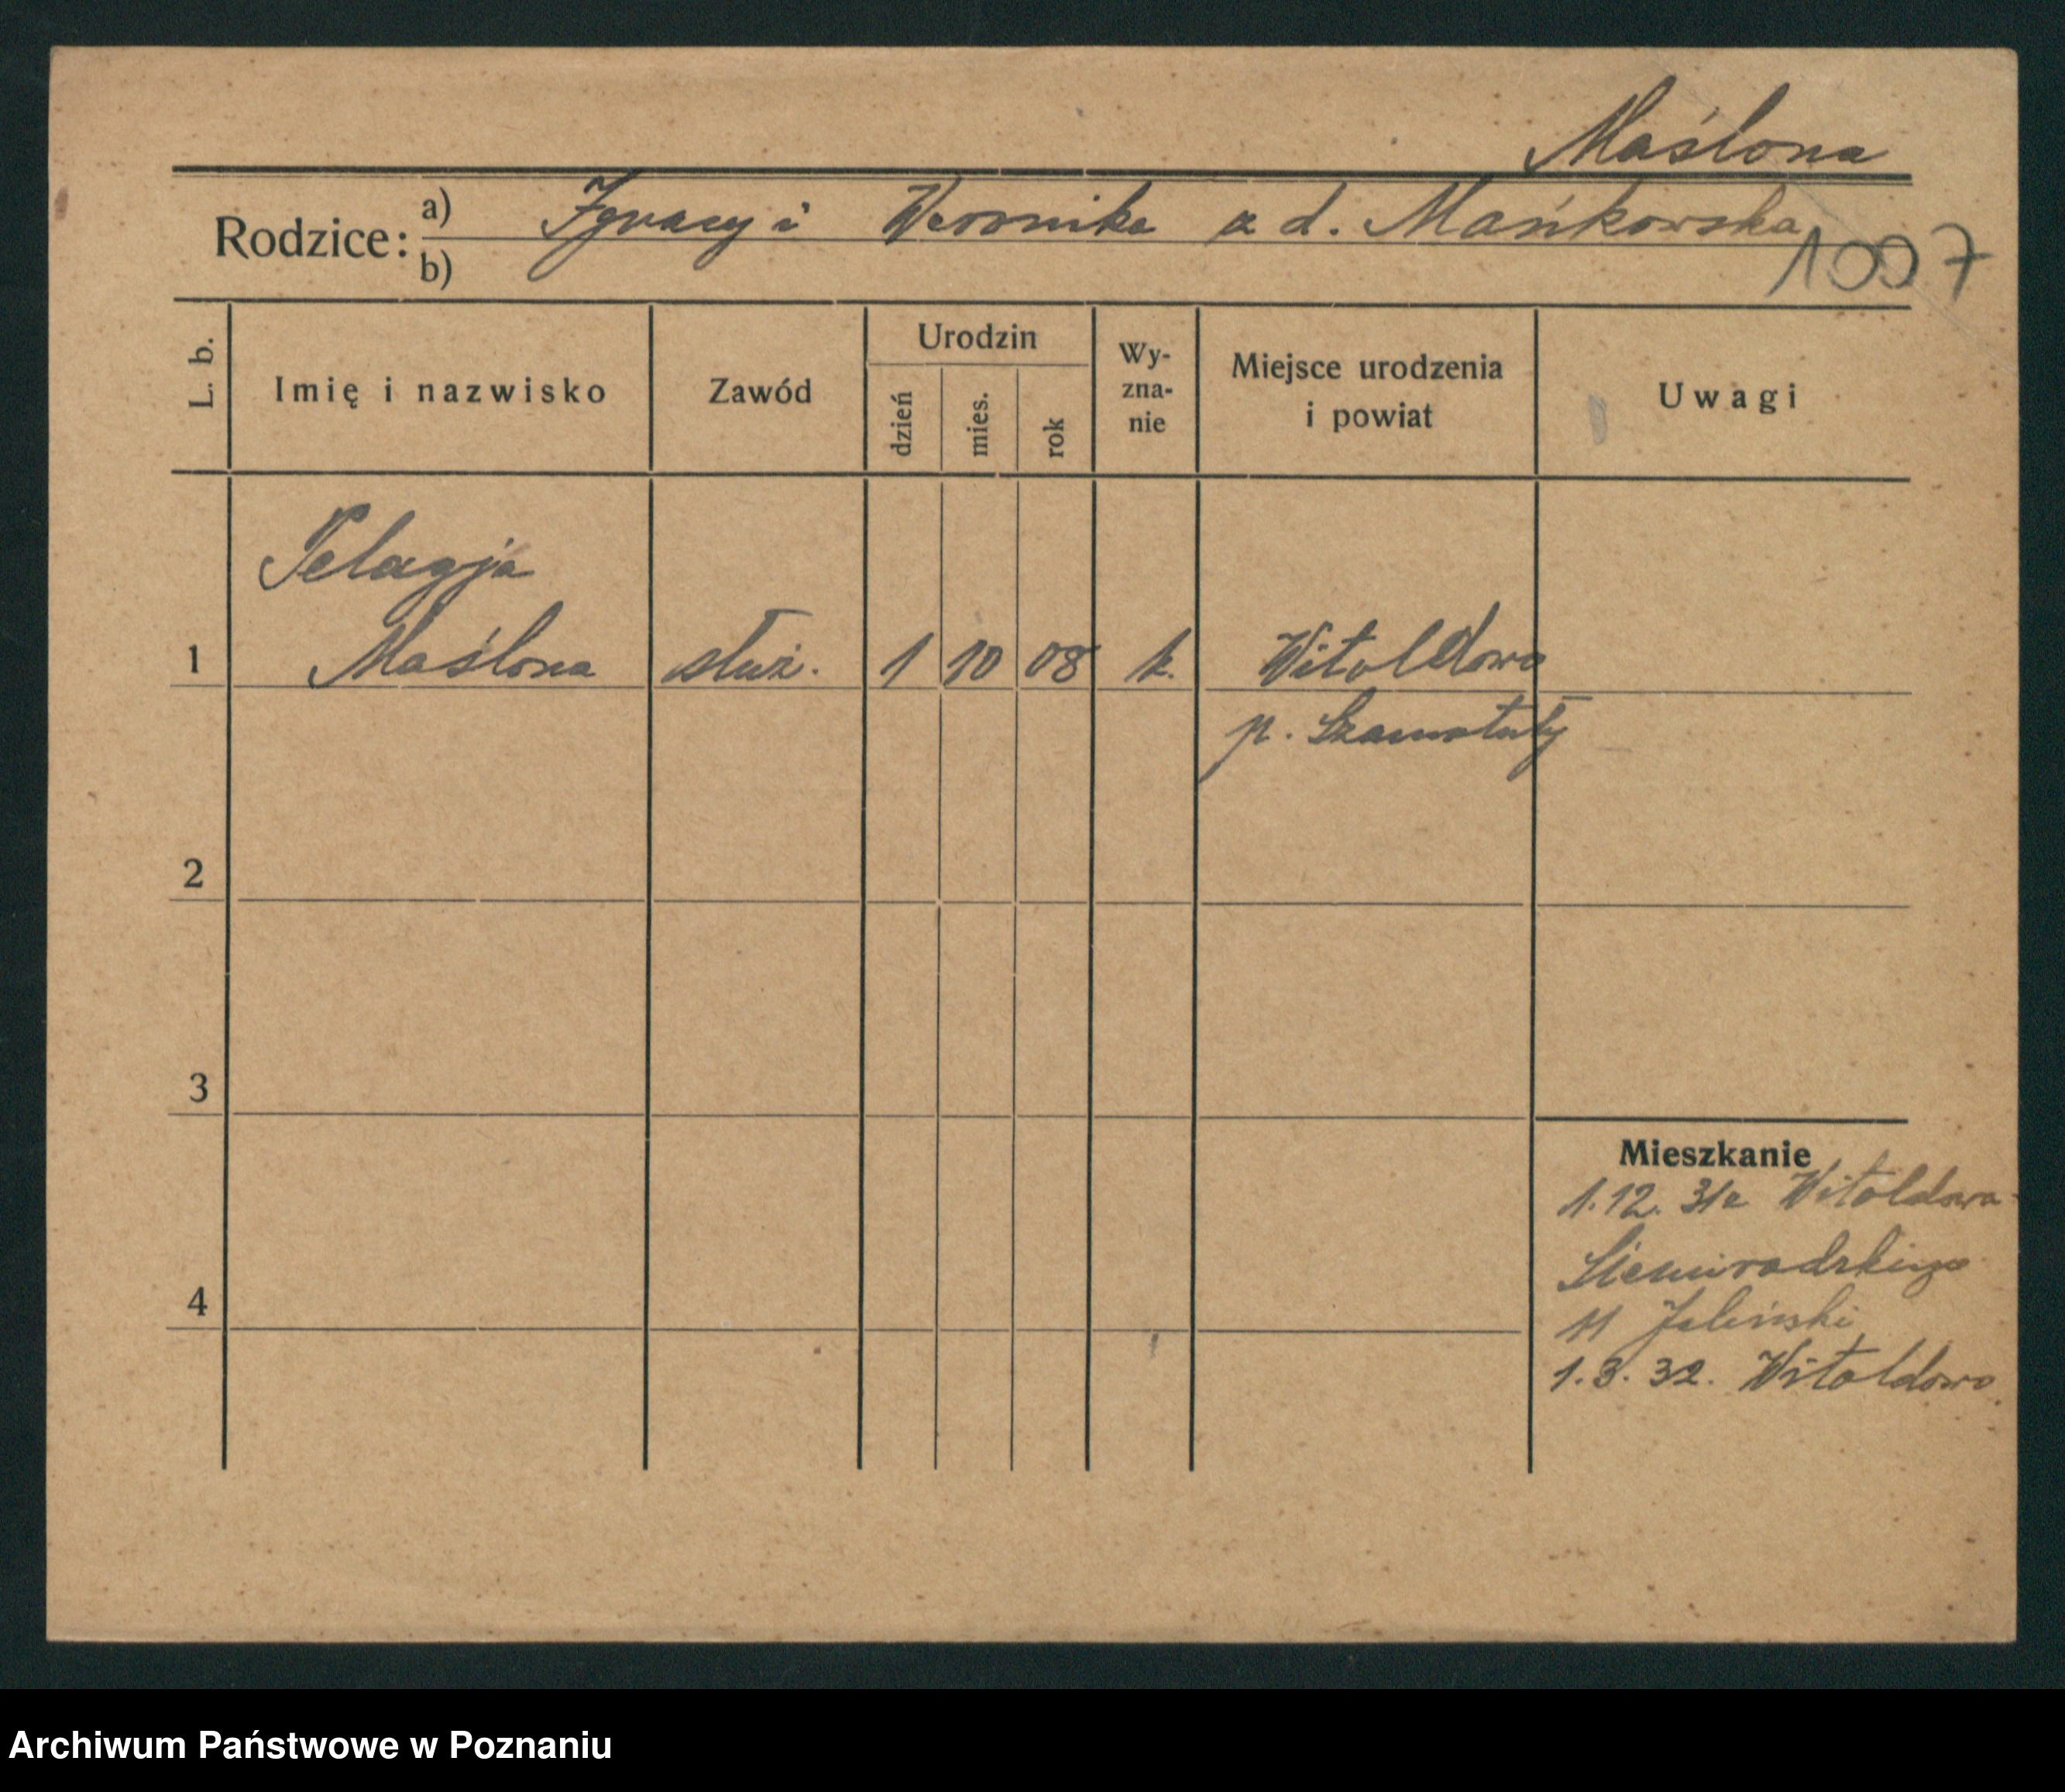 Maślona
Rodzice: a) Ignacy i Weronika z d. Mańkowska
b)
1007
L. b. Imię i nazwisko Zawód Urodzin dzień mies. rok Wy-zna-nie Miejsce urodzenia i powiat Uwagi
Pelagja
1 Maślona służ. 1 10 08 k. Witoldowo
p. Szamotuły
2
3
4
Mieszkanie
1.12. 31 z Witoldowa
Siemiradzkiego
11 Jaliński
1.3.32. Witoldowo
Archiwum Państwowe w Poznaniu